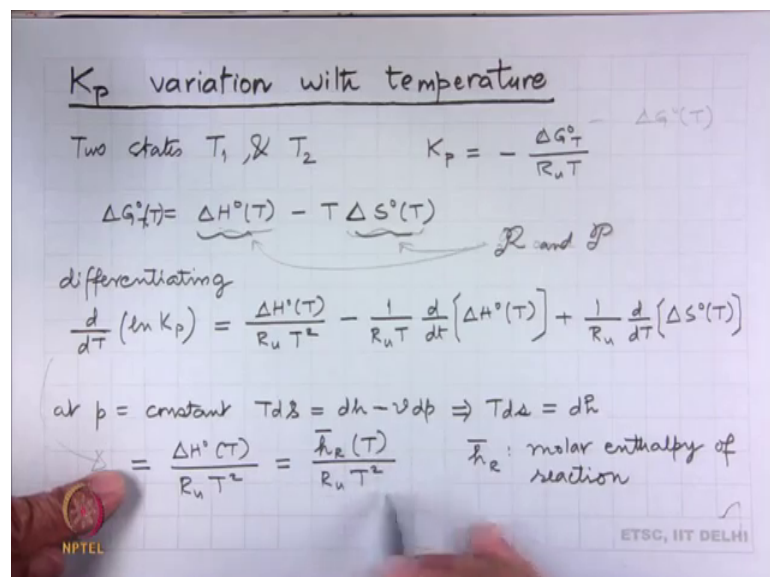 Kp variation with temperature
Two states T₁, & T₂ Kp = - ΔG°T / RuT - ΔG°(T)
ΔG°T(T) = ΔH°(T) - T ΔS°(T)
R and P
differentiating
d/dT (ln Kp) = ΔH°(T) / RuT² - 1/RuT d/dt [ΔH°(T)] + 1/Ru d/dT [ΔS°(T)]
at p = constant Tds = dh - vdp ⇒ Tds = dh
= ΔH°(T) / RuT² = h̄R(T) / RuT² h̄R : molar enthalpy of
reaction
NPTEL
ETSC, IIT DELHI